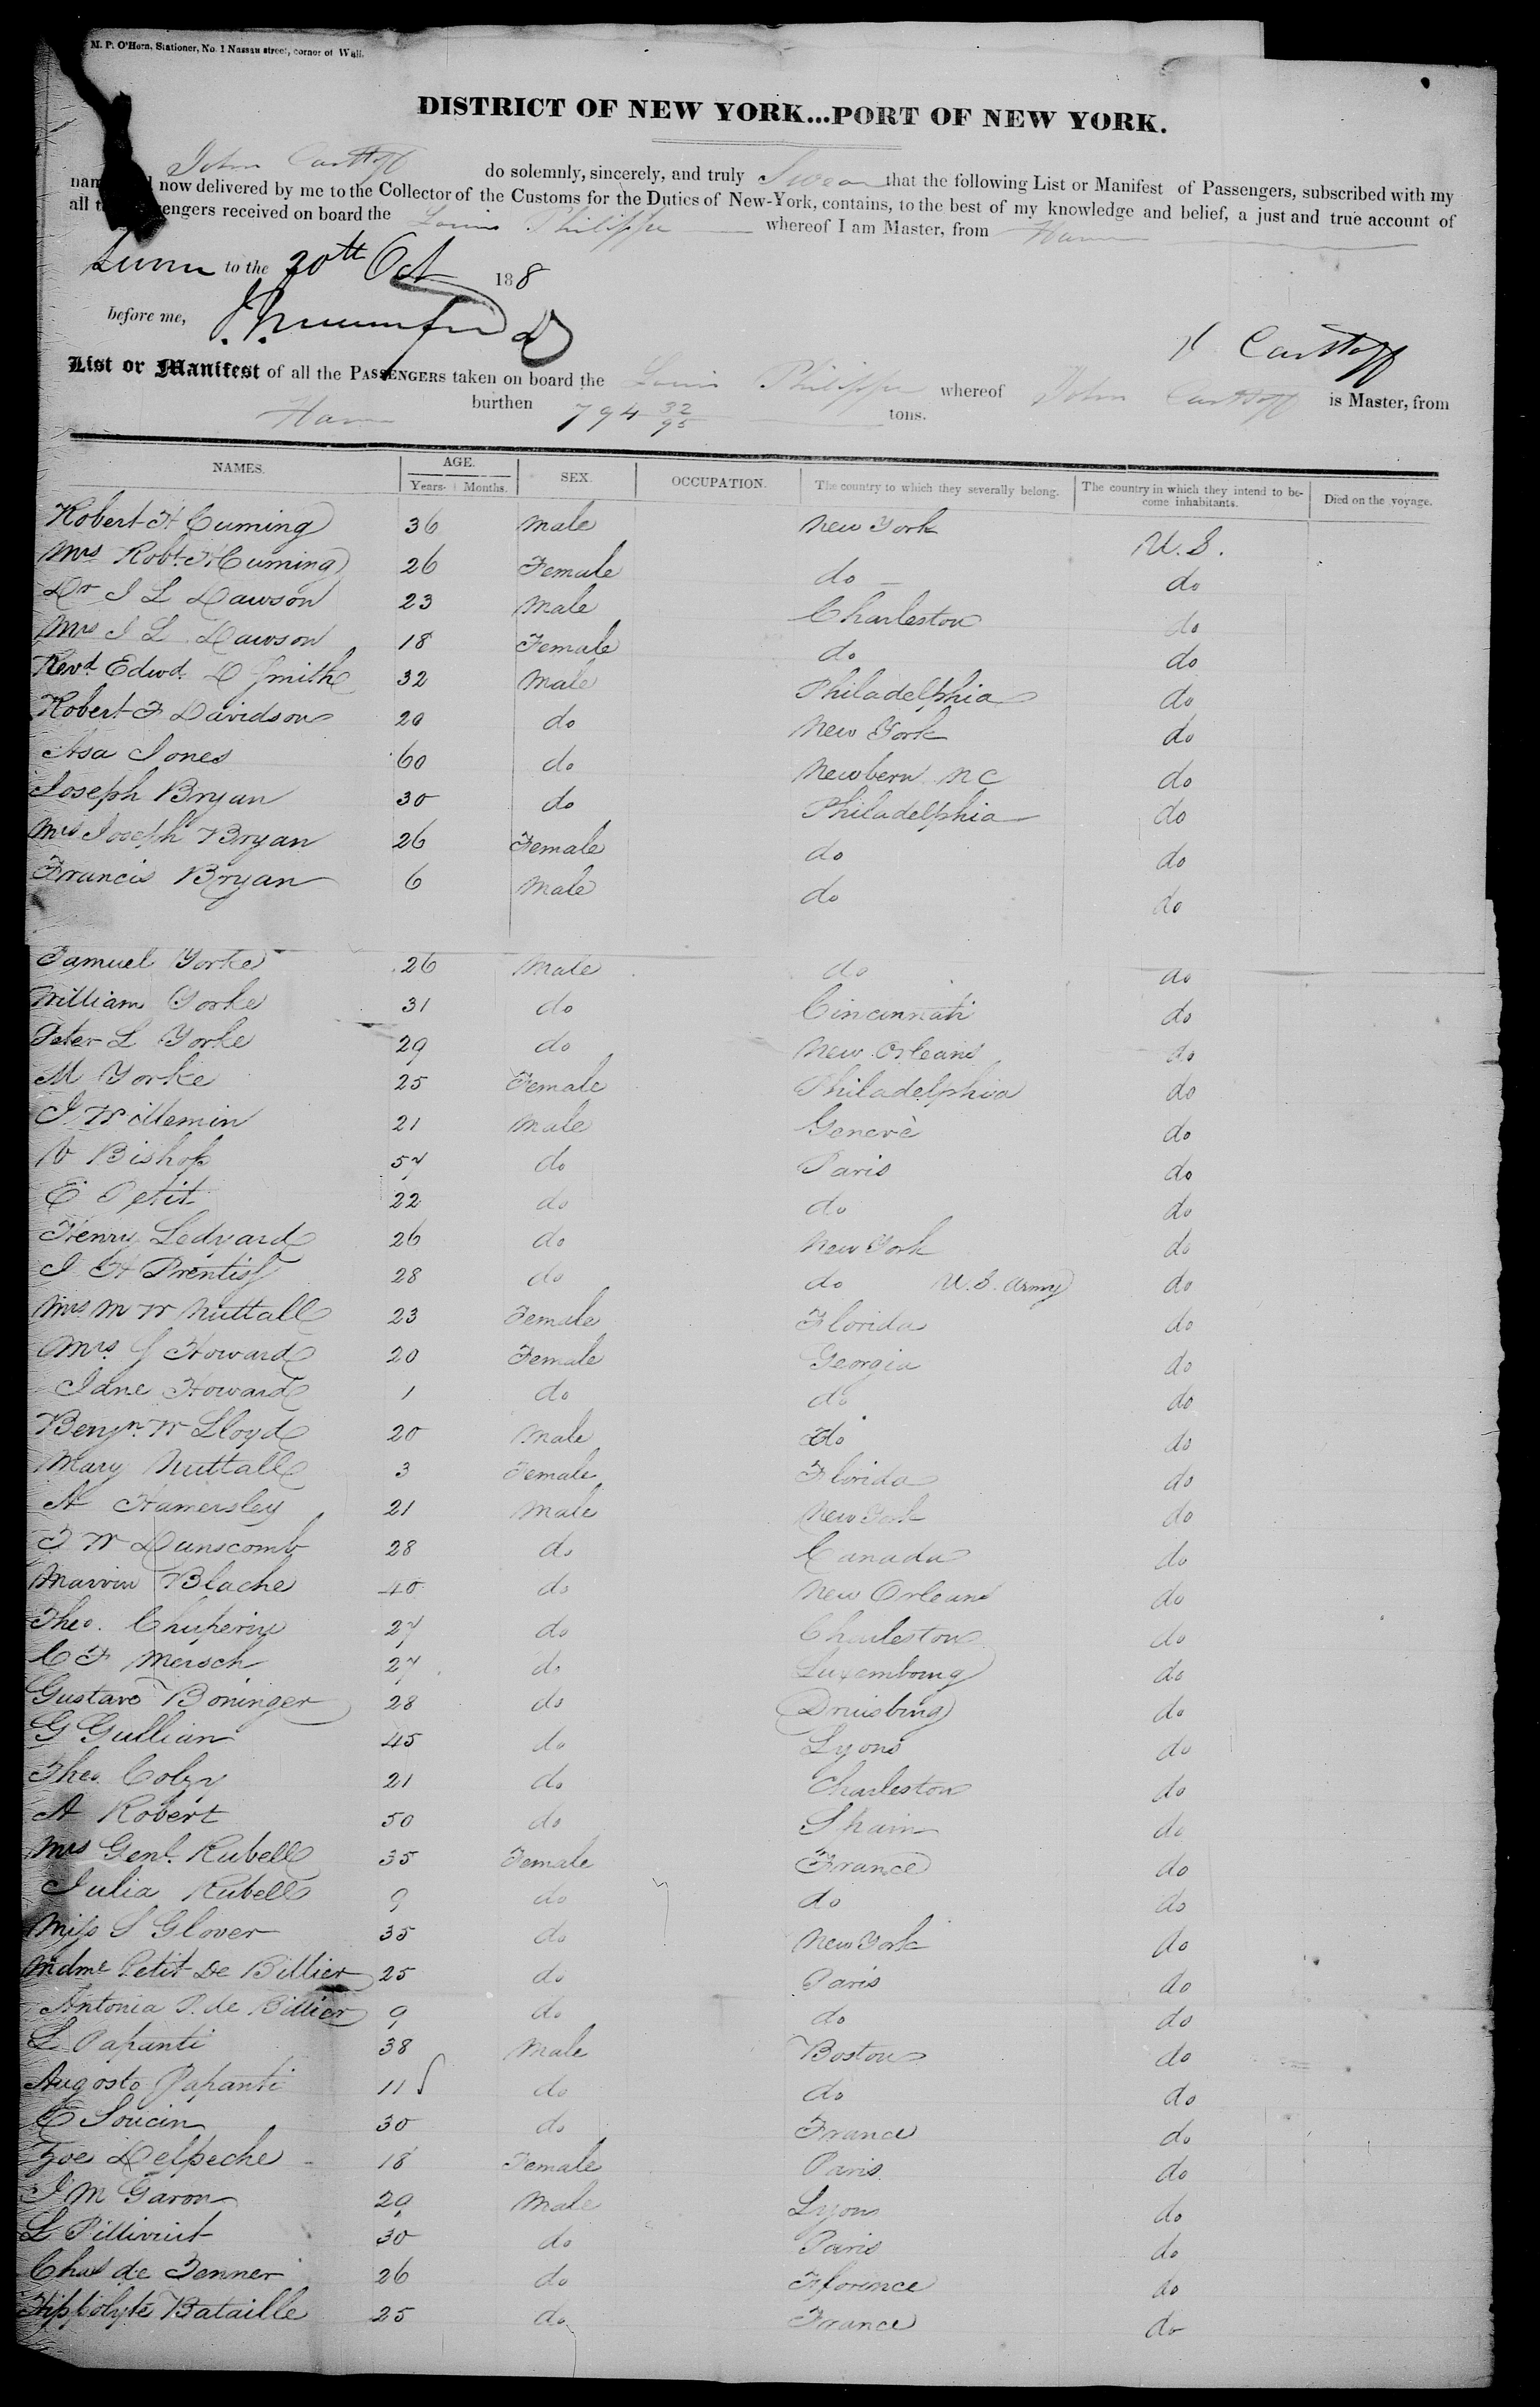 M. P. O'Horn, Stationer, No. 1 Nassau street, corner of Wall.
DISTRICT OF NEW YORK...PORT OF NEW YORK.
John Castoff do solemnly, sincerely, and truly Swear that the following List or Manifest of Passengers, subscribed with my
now delivered by me to the Collector of the Customs for the Duties of New-York, contains, to the best of my knowledge and belief, a just and true account of
all received on board the Louis Philippe whereof I am Master, from Havre
Sworn to the 20th Oct 188
before me,
J Castoff
List or Manifest of all the PASSENGERS taken on board the Louis Philippe whereof John Castoff is Master, from
Havre burthen 794 32/95 tons.
NAMES. AGE. Years. Months. SEX. OCCUPATION. The country to which they severally belong. The country in which they intend to become inhabitants. Died on the voyage.
Robert H Cuming 36 Male New York U. S.
Mrs Robt H Cuming 26 Female do do
Dr J L Dawson 23 Male Charleston do
Mrs J L Dawson 18 Female do do
Revd Edwd D Smith 32 Male Philadelphia do
Robert F Davidson 20 do New York do
Asa Jones 60 do Newbern N C do
Joseph Bryan 30 do Philadelphia do
Mrs Joseph Bryan 26 Female do do
Francis Bryan 6 Male do do
Samuel Yorke 26 Male do do
William Yorke 31 do Cincinnati do
Peter L Yorke 29 do New Orleans do
M Yorke 25 Female Philadelphia do
J Willemin 21 Male Genevè do
Bishop 57 do Paris do
E Petit 22 do do do
Henry Ledyard 26 do New York do
J H Prentiss 28 do do U. S. Army do
Mrs M W Nuttall 23 Female Florida do
Mrs Howard 20 Female Georgia do
Jane Howard 1 do do do
Benjn W Lloyd 20 Male do do
Mary Nuttall 3 Female Florida do
A Hamersley 21 Male New York do
J W Dunscomb 28 do Canada do
Marvin Blache 40 do New Orleans do
Theo. Chuperin 27 do Charleston do
C F Mersch 27 do Luxembourg do
Gustave Boninger 28 do Druisburg do
G Gullian 45 do Lyons do
Theo. 21 do Charleston do
A Robert 50 do Spain do
Mrs Genl. Rubell 35 Female France do
Julia Rubell 9 do do do
Miss S Glover 35 do New York do
Mdme Petit De Billier 25 do Paris do
Antonia P. de Billier 9 do do do
L Papanti 38 Male Boston do
Augosto Papanti 11 do do do
E Soucin 30 do France do
Zoe Delpeche 18 Female Paris do
J M Garon 29 Male Lyons do
L Pillivuit 30 do Paris do
Chas de Fenner 26 do Florence do
Hippolyte Bataille 25 do France do